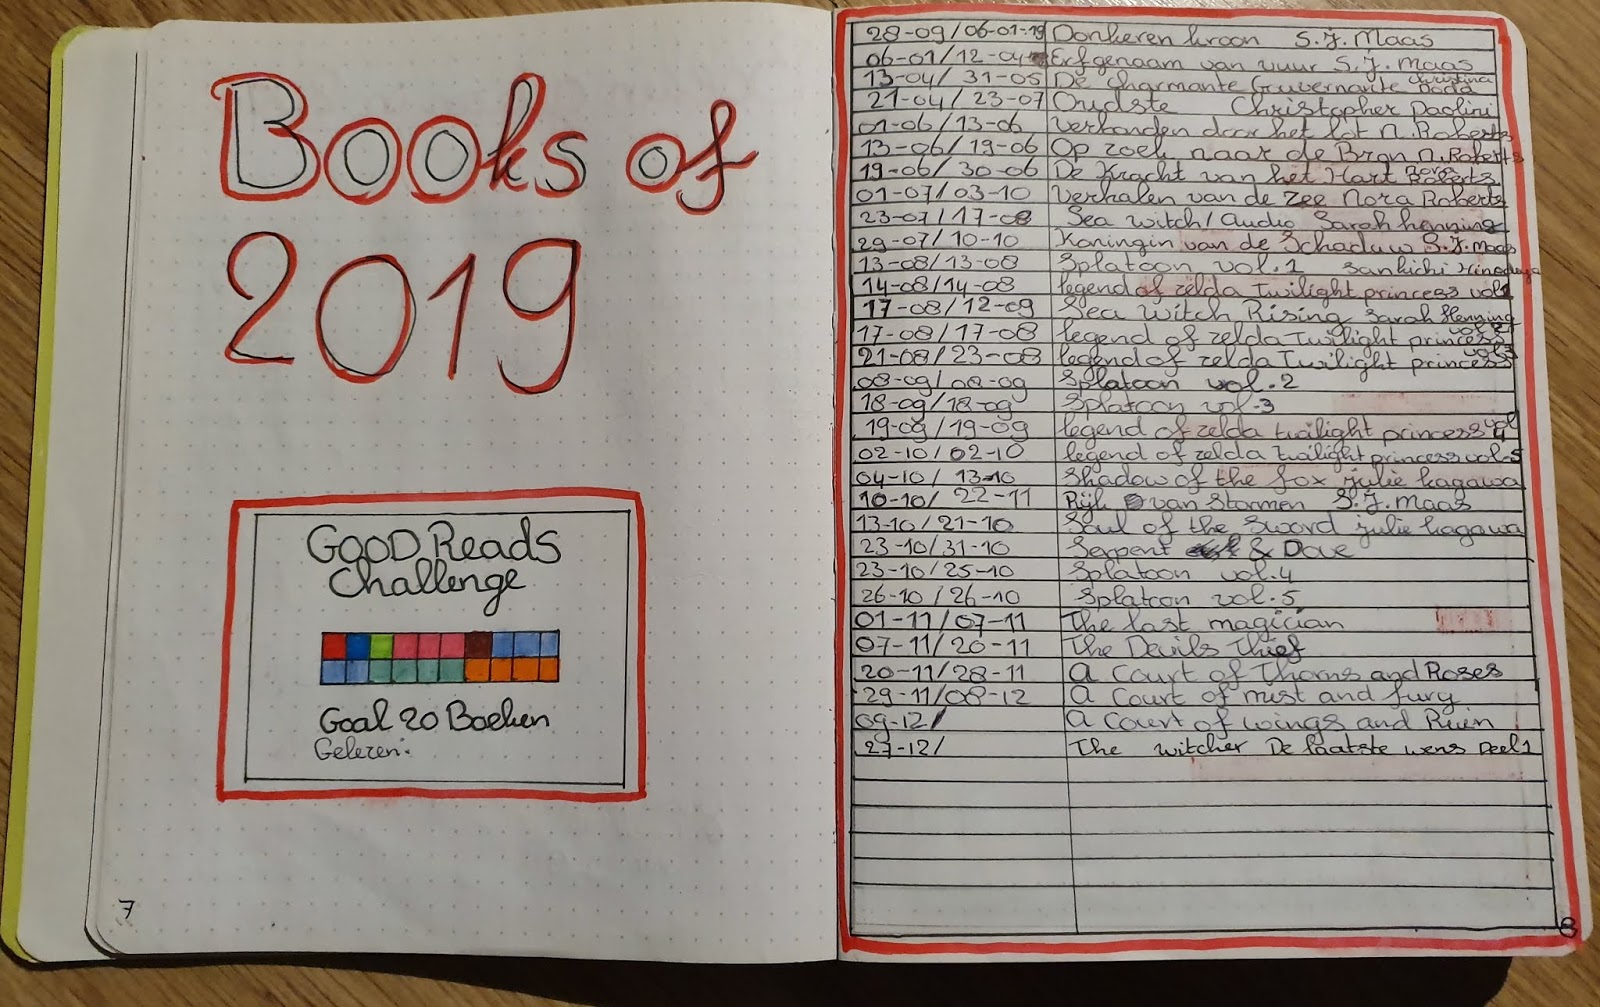 Books of
2019
GooD Reads
Challenge
Goal 20 Boeken
Gelezen:
7
28-09/06-01-19 Donkeren kroon S.J. Maas
06-01/12-04 Erfgenaam van vuur S.J. Maas
13-04/31-05 De Charmante Guvernante Christina Dodd
21-04/23-07 Oudste Christopher Paolini
01-06/13-06 Verbonden door het lot N. Roberts
13-06/19-06 Op zoek naar de Bron N. Roberts
19-06/30-06 De Kracht van het Hart Nora Roberts
01-07/03-10 Verhalen van de zee Nora Roberts
23-07/17-08 Sea witch/Audio Sarah henning
29-07/10-10 Koningin van de Schaduw S.J. Maas
13-08/13-08 Splatoon vol.1 Sankichi Hinodeya
14-08/14-08 legend of zelda Twilight princess vol1
17-08/12-09 Sea Witch Rising Sarah Henning
17-08/17-08 legend of zelda Twilight princess vol2
21-08/23-08 legend of zelda Twilight princess vol3
08-09/08-09 Splatoon vol.2
18-09/18-09 Splatoon vol.3
19-09/19-09 legend of zelda twilight princess vol 4
02-10/02-10 legend of zelda twilight princess vol.5
04-10/13-10 Shadow of the fox julie kagawa
10-10/22-11 Rijk van Stormen S.J. Maas
13-10/21-10 Soul of the Sword julie kagawa
23-10/31-10 Serpent & Dove
23-10/25-10 Splatoon vol.4
26-10/26-10 Splatoon vol.5
01-11/07-11 The last magician
07-11/20-11 The Devils Thief
20-11/28-11 A Court of Thorns and Roses
29-11/08-12 A Court of mist and fury
09-12/ A Court of wings and Ruin
27-12/ The witcher De laatste wens Deel 1
8